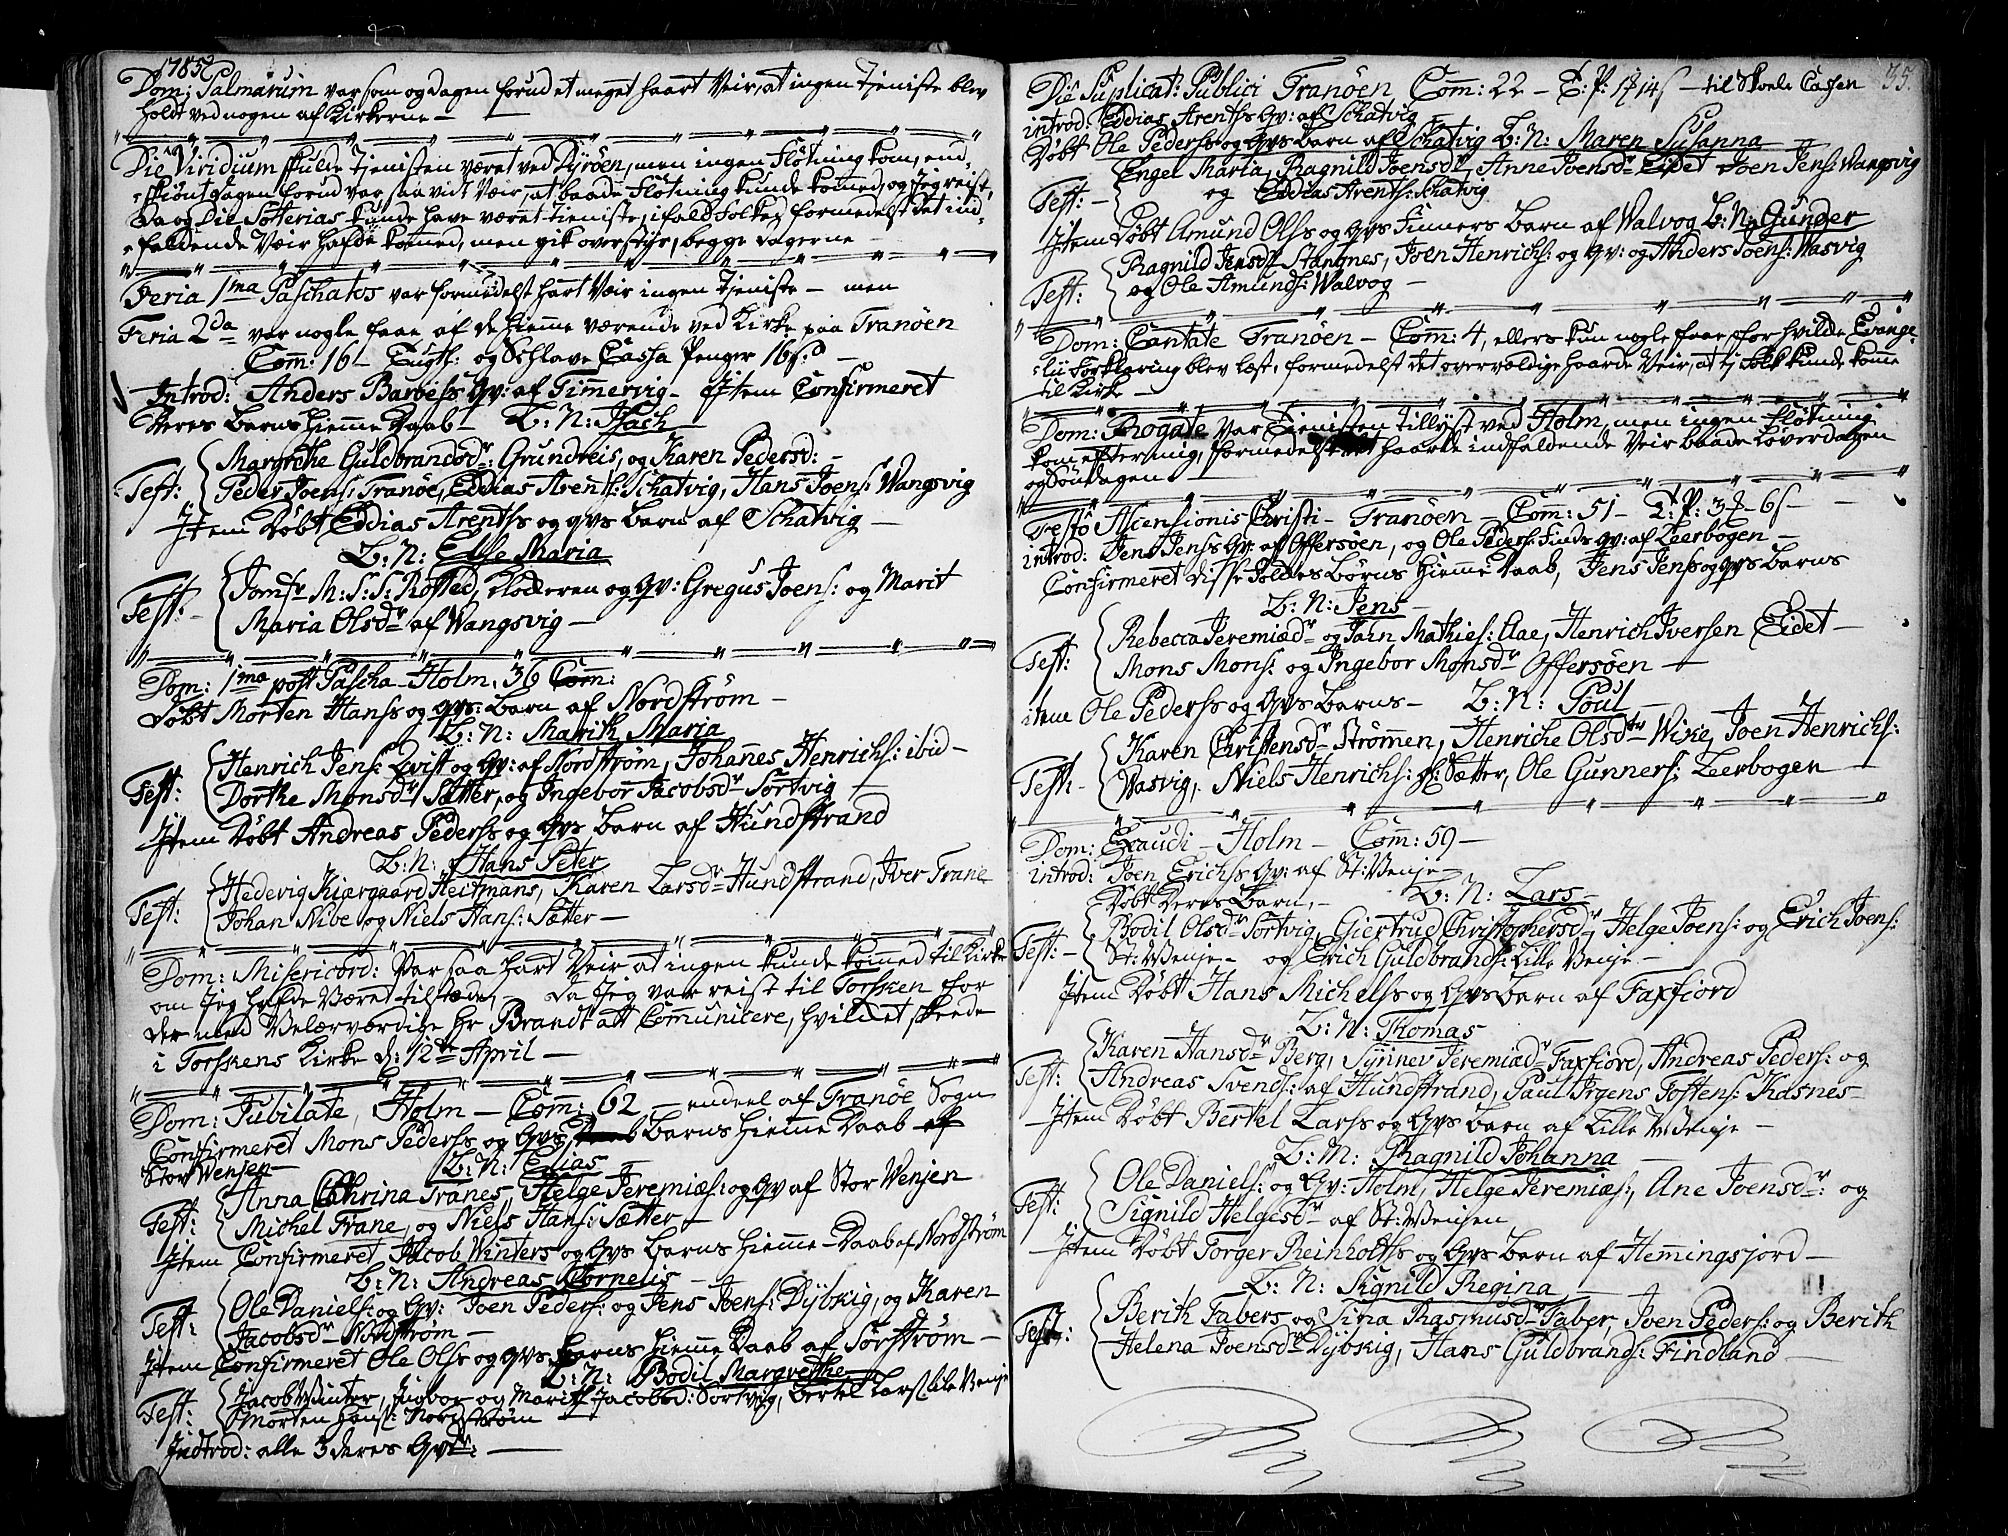 1785
Dom: Palmarum var som og dagen forud et meget haart Veir, at ingen Tjeniste blev
holdt ved nogen af Kirkerne —
Die Viridium skulde Tjenisten været ved Dyrøen, men ingen Fløtning kom, end-
skiønt dagen forud var saa vidt Veir, at baade Fløtning kunde komed, og jeg reist,
da og Die Soterias kunde have været tieniste, ifald Folkes formedelst det ind-
faldende Veir hafde komed, men gik overstyr, begge dagerne —
Feria 1ma Paschatos var formedelst hart Veir ingen Tjeniste — men
Feria 2da var nogle faae af de hiemme værende ved Kirke paa Tranøen
Com: 16 — Tugth: og Schlave Cassa Penger 16 s —
Introd: Anders Barbess Qv: af Timmervig — Item Confirmeret
deres barns hiemme Daab — B: N: Isach
Test: Margrethe Guldbrandsdr: Grundreis, og Karen Pedersd: —
Peder Joens: Tranøe, Eddias Arents: Schatvig, Hans Joens: Wangsvig
Item Døbt Eddias Arentss og qvs barn af Schatvig —
B: N: Else Maria
Test: — Jomfr M: S: S: Rosted, Klockeren og Qv: Gregus Joens: og Marit
Maria Olsdr af Wangsvig —
Dom: 1ma post Pascha — Holm. 36 Com:
Døbt Morten Hanss og qvs: barn af Nordstrøm —
B: N: Marith Maria
Test: Henrich Jens: Qvist og Qv: af Nordstrøm, Johannes Henrichs: ibid —
Dorthe Monsdr Sætter, og Ingebor Jacobsdr Sortvig —
Item Døbt Andreas Pederss og Qvs barn af Hundstrand
B: N: Hans Peter
Test: Hedevig Kiærgaard Heitmans, Karen Larsdr Hundstrand, Iver Trane
Johan Nibe og Niels Hans: Sætter —
Dom: Misericord: Var saa hart Veir at ingen kunde komed til Kirke
om Jeg hafde Været tilstæde, da Jeg var reist til Torsken for
der med Velærværdige Hr Brandt att Comunicere, hvilket skeede
i Torskens Kirke d: 12te April —
Dom: Jubilate, Holm — Com: 62 — endeel af Tranøe Sogn
Confirmeret Mons Pederss og Qvs barns hiemme Daab af
Stor Wenjen — B: N: Elias —
Test: Anna Cathrina Tranes, Helge Jeremiæs: og Qv af Stor Wenjen
Michel Trane, og Niels Hans: Sætter —
Item Confirmeret Jacob Winters og Qvs barns hiemme — Daab af Nordstrøm
B: N: Andreas Cornelis —
Test: Ole Daniels: og Qv: Joen Peders: og Jens Joens: Dybvig, og Karen
Jacobsdr Nordstrøm —
Item Confirmeret Ole Olss og Qvs barns hiemme Daab af Sørstrøm —
B: N: Bodil Margrethe
Test: Jacob Winter, Ingbor og Marith Jacobsd: Sortvig, Bertel Lars: lile Venje
Morten Hans: Nordstrøm
Indtrod: alle 3 deres Qvdr: —
35.
Die Suplicat: Publici Tranøen Com: 22 — T: P: 14 s — til Skole Cassen
introd: Eddias Arentss Qv: af Schatvig —
Døbt Ole Pederss og Qvs barn af Schatvig B: N: Maren Susanna
Test: — Engel Maria, Ragnild Joensdr, Anne Joensdr Eidet Joen Jens: Wangsvig
og Eddias Arents: Schatvig
Item Døbt Amund Olss og Qvs Finners barn af Walvog B: N: Gunder
Test: Ragnild Jensdr Stangnes, Joen Henrichs: og Qv: og Anders Joens: Wasvig
og Ole Amunds: Walvog —
Dom: Cantate Tranøen — Com: 4, ellers kun nogle faae, for hvilde Evange-
lii Forklaring blev læst, formedelst det overvældige haarde Veir, at ej Folk kunde kome
til Kirke —
Dom: Rogate var Tienisten tillyst ved Holm, men ingen Fløtning
kom efter mig, formedelst det haarde indfaldende Veir baade Løverdagen
og Søndagen —
Festo Ascensionis Christi — Tranøen — Com: 51 — T: P: 3 — 6 s —
introd: Jens Jenss Qv: af Offersøen, og Ole Peders: Finds qv: af Leerbogen —
Confirmeret disse Foldes børns hiemme Daab, Jens Jenss og qvs barns
B: N: Jens —
Test: Rebecca Jeremiædr og Jørn Mathies: Aae, Henrich Iversen Eidet —
Mons Mons: og Ingebor Monsdr Offersøen —
item Ole Pederss og Qvs barns — B: N: Poul —
Test: — Karen Christensdr Strømmen, Henriche Olsdtr Wike, Joen Henrichs:
Wasvig, Niels Henrichs: Sætter, Ole Gunners: Leerbogen —
Dom: Exaudi — Holm — Com: 59 —
introd: Joen Erichss Qv: af St: Venje —
Døbt deres barn, — B: N: Lars —
Test: — Bodil Olsdr Sortvig, Giertrud Christophersdr, Helge Joens: og Erich Joens:
St: Wenje — og Erich Guldbrands: Lille Venje —
Item Døbt Hans Michelss og Qvs barn af Faxfiord
B: N: Thomas
Test: Karen Hansdr Berg, Synnev Jeremiædr Faxfiord, Andreas Peders: og
Andreas Svends: af Hundstrand, Paul Irgens Tostens: Kasnes —
Item Døbt Bertel Larss og Qvs barn af Lille Wenje —
B: N: Ragnild Johanna —
Test: Ole Daniels: og Qv: Holm, Helge Jeremiæs:, Ane Joensdr: og
Signild Helgesdr af St: Wenjen
Item Døbt Torger Reinholtss og Qvs barn af Hemmingsjord —
B: N: Signild Regina —
Test: Berith Fabers og Sina Rasmusdr Faber, Joen Peders: og Berith
Helena Joensdr Dybvig, Hans Guldbrands: Findland —